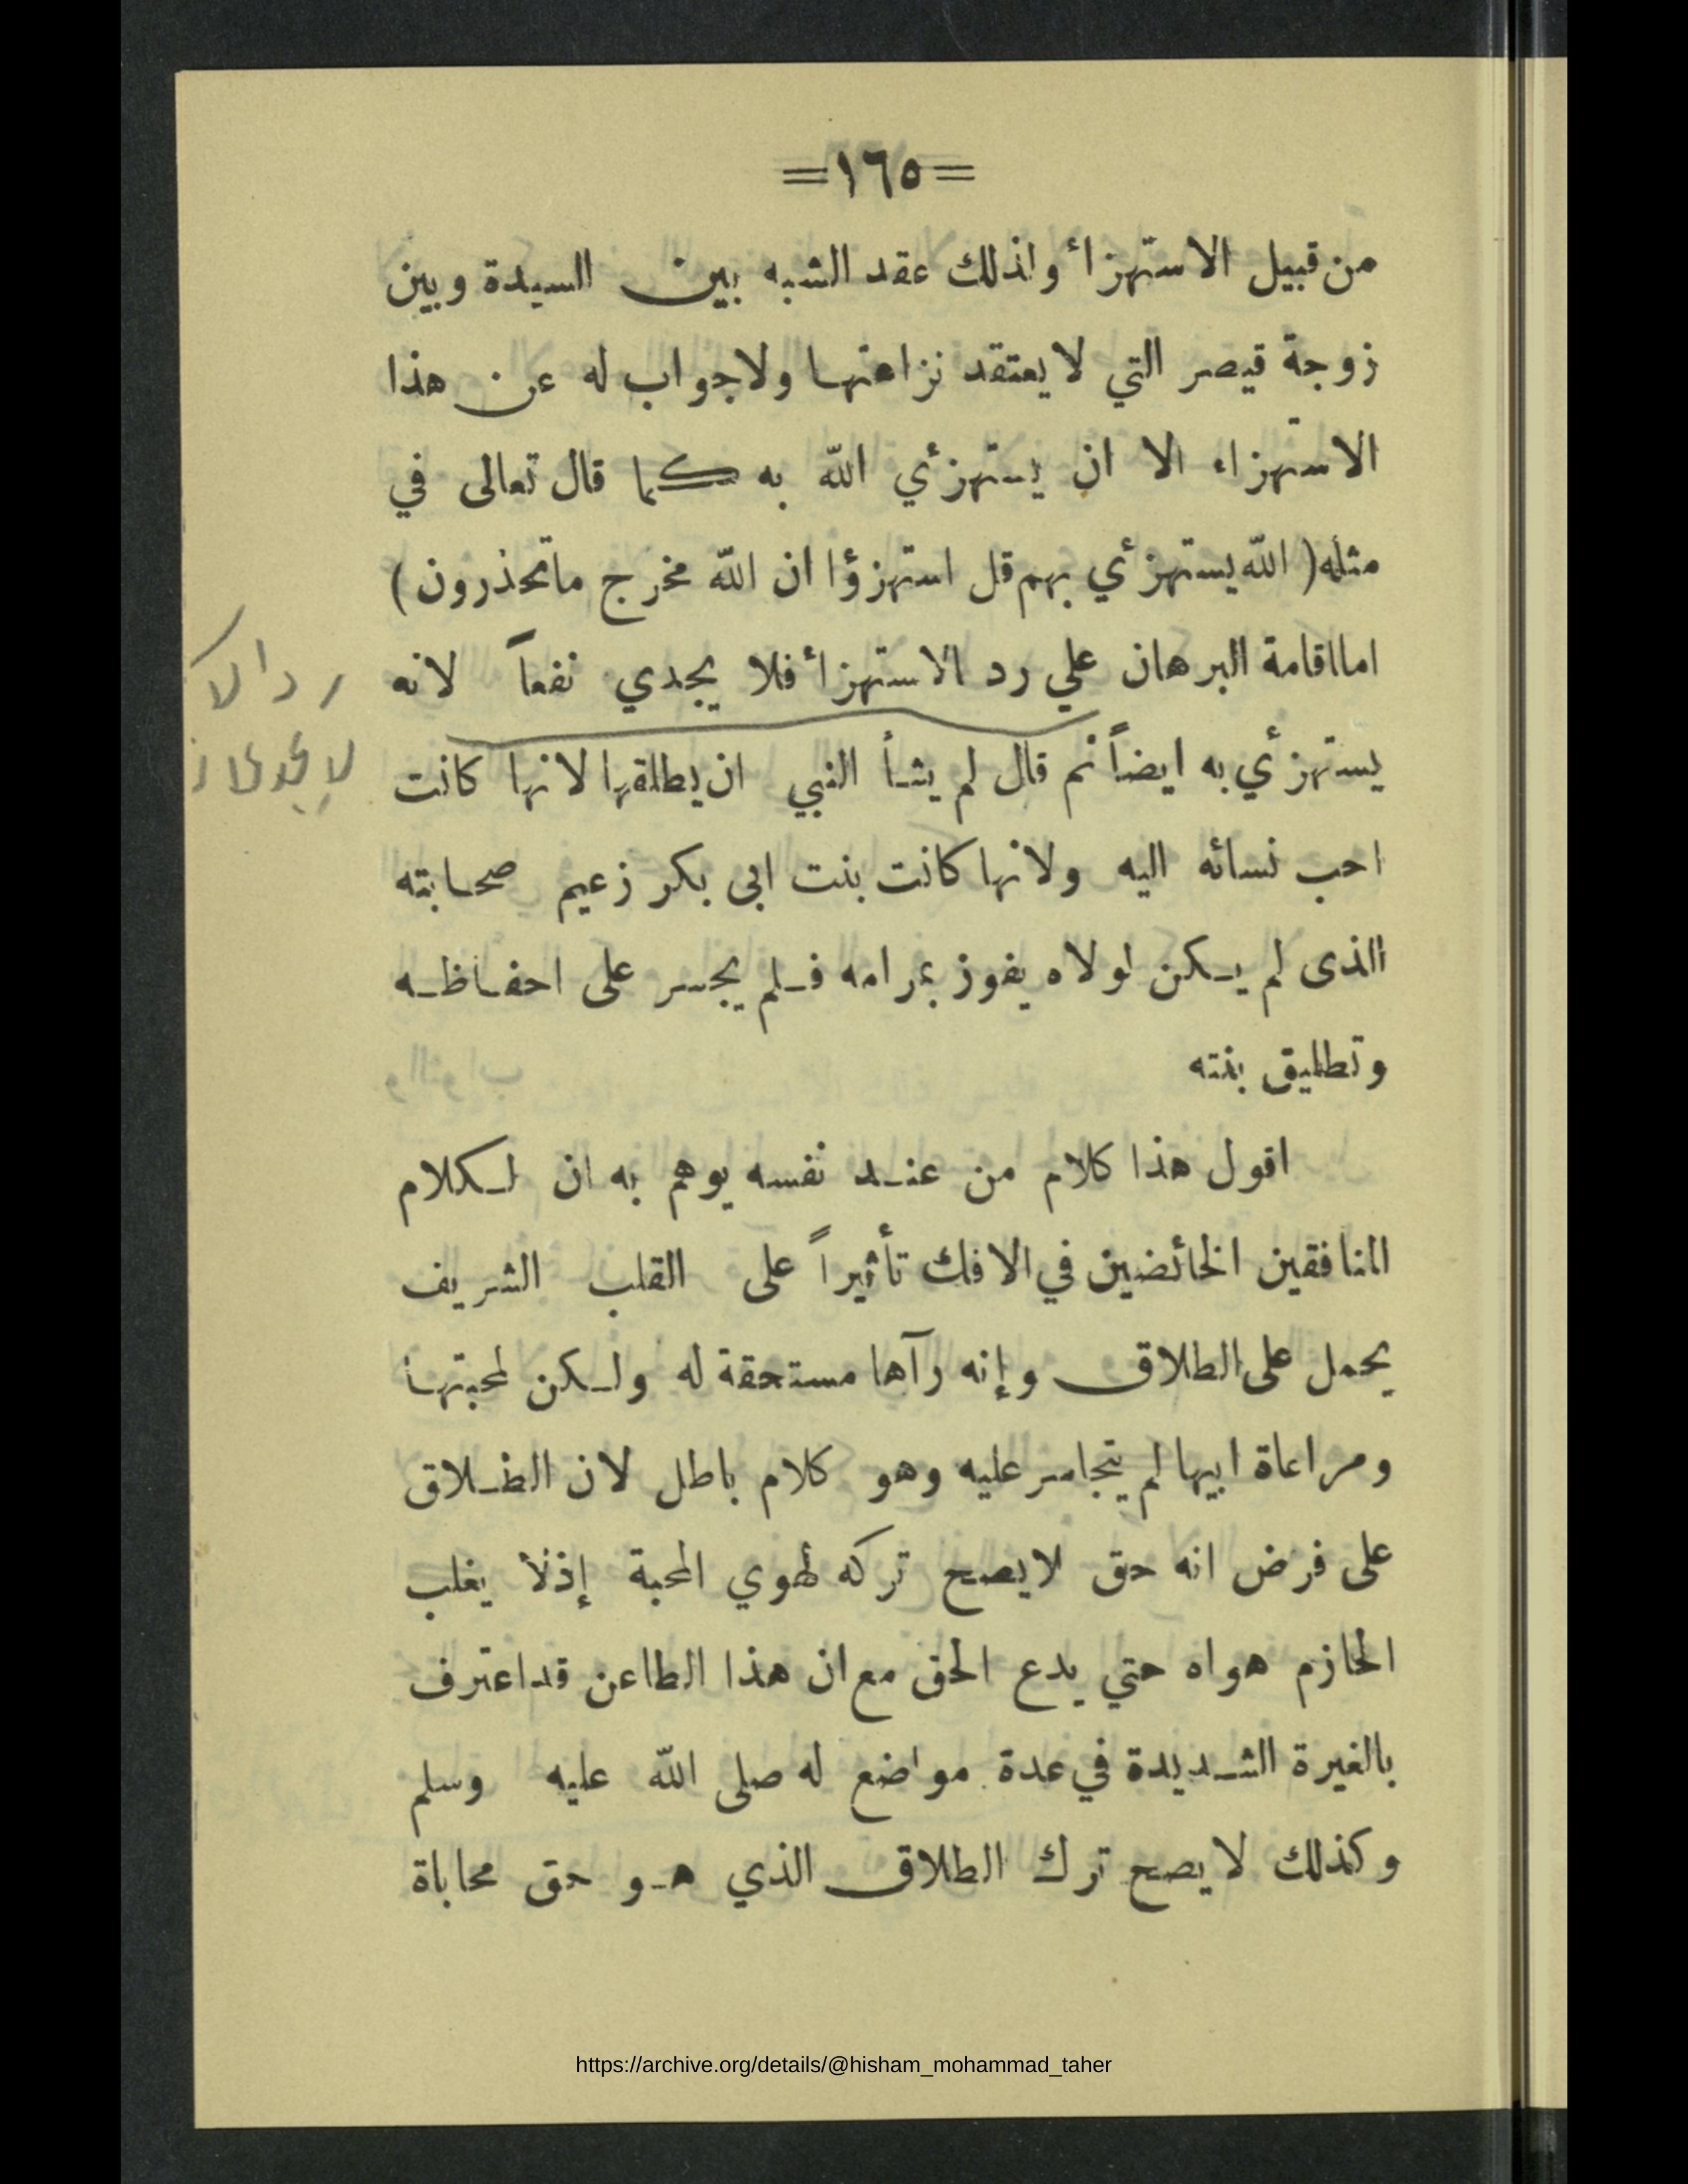 =١٦٥=
من قبيل الاستهزأ ولذلك عقد الشبه بين السيدة وبين
زوجة قيصر التي لا يعتقد نزاهتها ولا جواب له عن هذا
الاستهزاء الا ان يستهزأي الله به كما قال تعالى في
مثله ( الله يستهزأي بهم قل استهزؤا ان الله مخرج ما تحذرون )
اما اقامة البرهان علي رد الاستهزأ فلا يجدي نفعاً لانه
يستهزأي به ايضاً ثم قال لم يشأ النبي ان يطلقها لانها كانت
احب نسائه اليه ولانها كانت بنت ابى بكر زعيم صحابته
الذى لم يكن لولاه يفوز بمرامه فلم يجسر على احفاظه
وتطليق بنته
اقول هذا كلام من عند نفسه يوهم به ان لكلام
المنافقين الخائضين في الافك تأثيراً على القلب الشريف
يحمل على الطلاق وإنه رآها مستحقة له ولكن لمحبتها
ومراعاة ابيها لم يتجاسر عليه وهو كلام باطل لان الطلاق
على فرض انه حق لا يصح تركه لهوي المحبة إذ لا يغلب
الحازم هواه حتي يدع الحق مع ان هذا الطاعن قد اعترف
بالغيرة الشديدة في عدة مواضع له صلى الله عليه وسلم
وكذلك لا يصح ترك الطلاق الذي هو حق محاباة
رد الا
لا يجدي
https://archive.org/details/@hisham_mohammad_taher